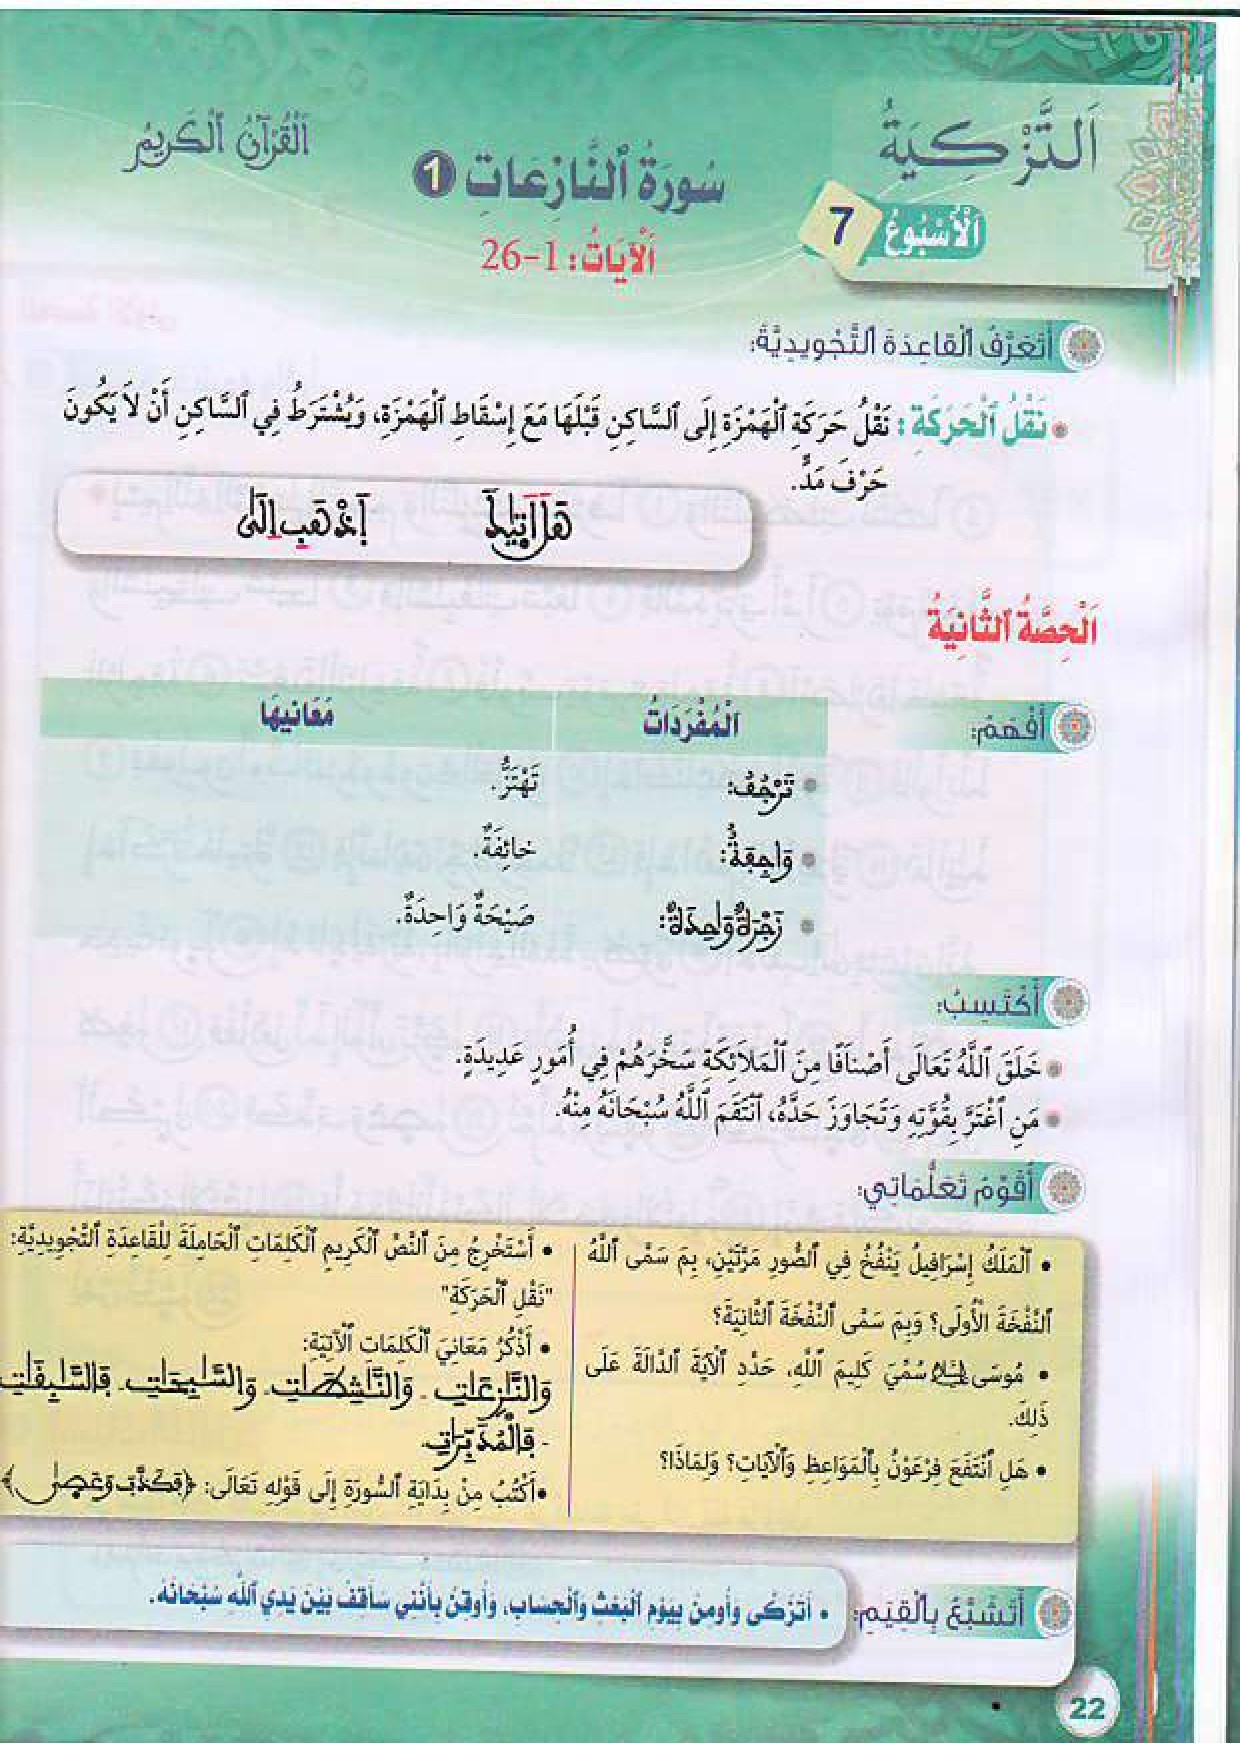 اَلتَّزْكِيَةُ
اَلْقُرْآنُ اَلْكَرِيمُ
سُورَةُ اَلنَّازِعَاتِ 1
اَلْأُسْبُوعُ 7
اَلْآيَاتُ: 1-26
أَتَعَرَّفُ اَلْقَاعِدَةَ اَلتَّجْوِيدِيَّةَ:
• نَقْلُ اَلْحَرَكَةِ: نَقْلُ حَرَكَةِ اَلْهَمْزَةِ إِلَى اَلسَّاكِنِ قَبْلَهَا مَعَ إِسْقَاطِ اَلْهَمْزَةِ، وَيُشْتَرَطُ فِي اَلسَّاكِنِ أَنْ لاَ يَكُونَ
حَرْفَ مَدٍّ.
هَلَ اَتَيٰكَ اَذْهَبِ اِلَىٰ
اَلْحِصَّةُ اَلثَّانِيَةُ
أَفْهَمُ:
اَلْمُفْرَدَاتُ مَعَانِيهَا
• تَرْجُفُ: تَهْتَزُّ.
• وَاجِفَةٌ: خَائِفَةٌ.
• زَجْرَةٌ وَاحِدَةٌ: صَيْحَةٌ وَاحِدَةٌ.
أَكْتَسِبُ:
• خَلَقَ اَللَّهُ تَعَالَى أَصْنَافًا مِنَ اَلْمَلَائِكَةِ سَخَّرَهُمْ فِي أُمُورٍ عَدِيدَةٍ.
• مَنِ اَغْتَرَّ بِقُوَّتِهِ وَتَجَاوَزَ حَدَّهُ، اَنْتَقَمَ اَللَّهُ سُبْحَانَهُ مِنْهُ.
أُقَوِّمُ تَعَلُّمَاتِي:
• اَلْمَلَكُ إِسْرَافِيلُ يَنْفُخُ فِي اَلصُّورِ مَرَّتَيْنِ، بِمَ سَمَّى اَللَّهُ
اَلنَّفْخَةَ اَلْأُولَى؟ وَبِمَ سَمَّى اَلنَّفْخَةَ اَلثَّانِيَةَ؟
• مُوسَى عليه السلام سُمِّيَ كَلِيمَ اَللَّهِ، حَدِّدِ اَلْآيَةَ اَلدَّالَةَ عَلَى
ذَلِكَ.
• هَلِ اَنْتَفَعَ فِرْعَوْنُ بِالْمَوَاعِظِ وَالْآيَاتِ؟ وَلِمَاذَا؟
• أَسْتَخْرِجُ مِنَ اَلنَّصِّ اَلْكَرِيمِ اَلْكَلِمَاتِ اَلْحَامِلَةَ لِلْقَاعِدَةِ اَلتَّجْوِيدِيَّةِ:
"نَقْلِ اَلْحَرَكَةِ"
• أَذْكُرُ مَعَانِيَ اَلْكَلِمَاتِ اَلْآتِيَةِ:
وَالنَّٰزِعَٰتِ - وَالنَّٰشِطَٰتِ - وَالسَّٰبِحَٰتِ - فَالسَّٰبِقَٰتِ
- فَالْمُدَبِّرَٰتِ.
• أَكْتُبُ مِنْ بِدَايَةِ اَلسُّورَةِ إِلَى قَوْلِهِ تَعَالَى: ﴿فَكَذَّبَ وَعَصَىٰ﴾
أَتَشَبَّعُ بِالْقِيَمِ:
• أَتَزَكَّى وَأُومِنُ بِيَوْمِ اَلْبَعْثِ وَالْحِسَابِ، وَأُوقِنُ بِأَنَّنِي سَأَقِفُ بَيْنَ يَدَيِ اَللَّهِ سُبْحَانَهُ.
22